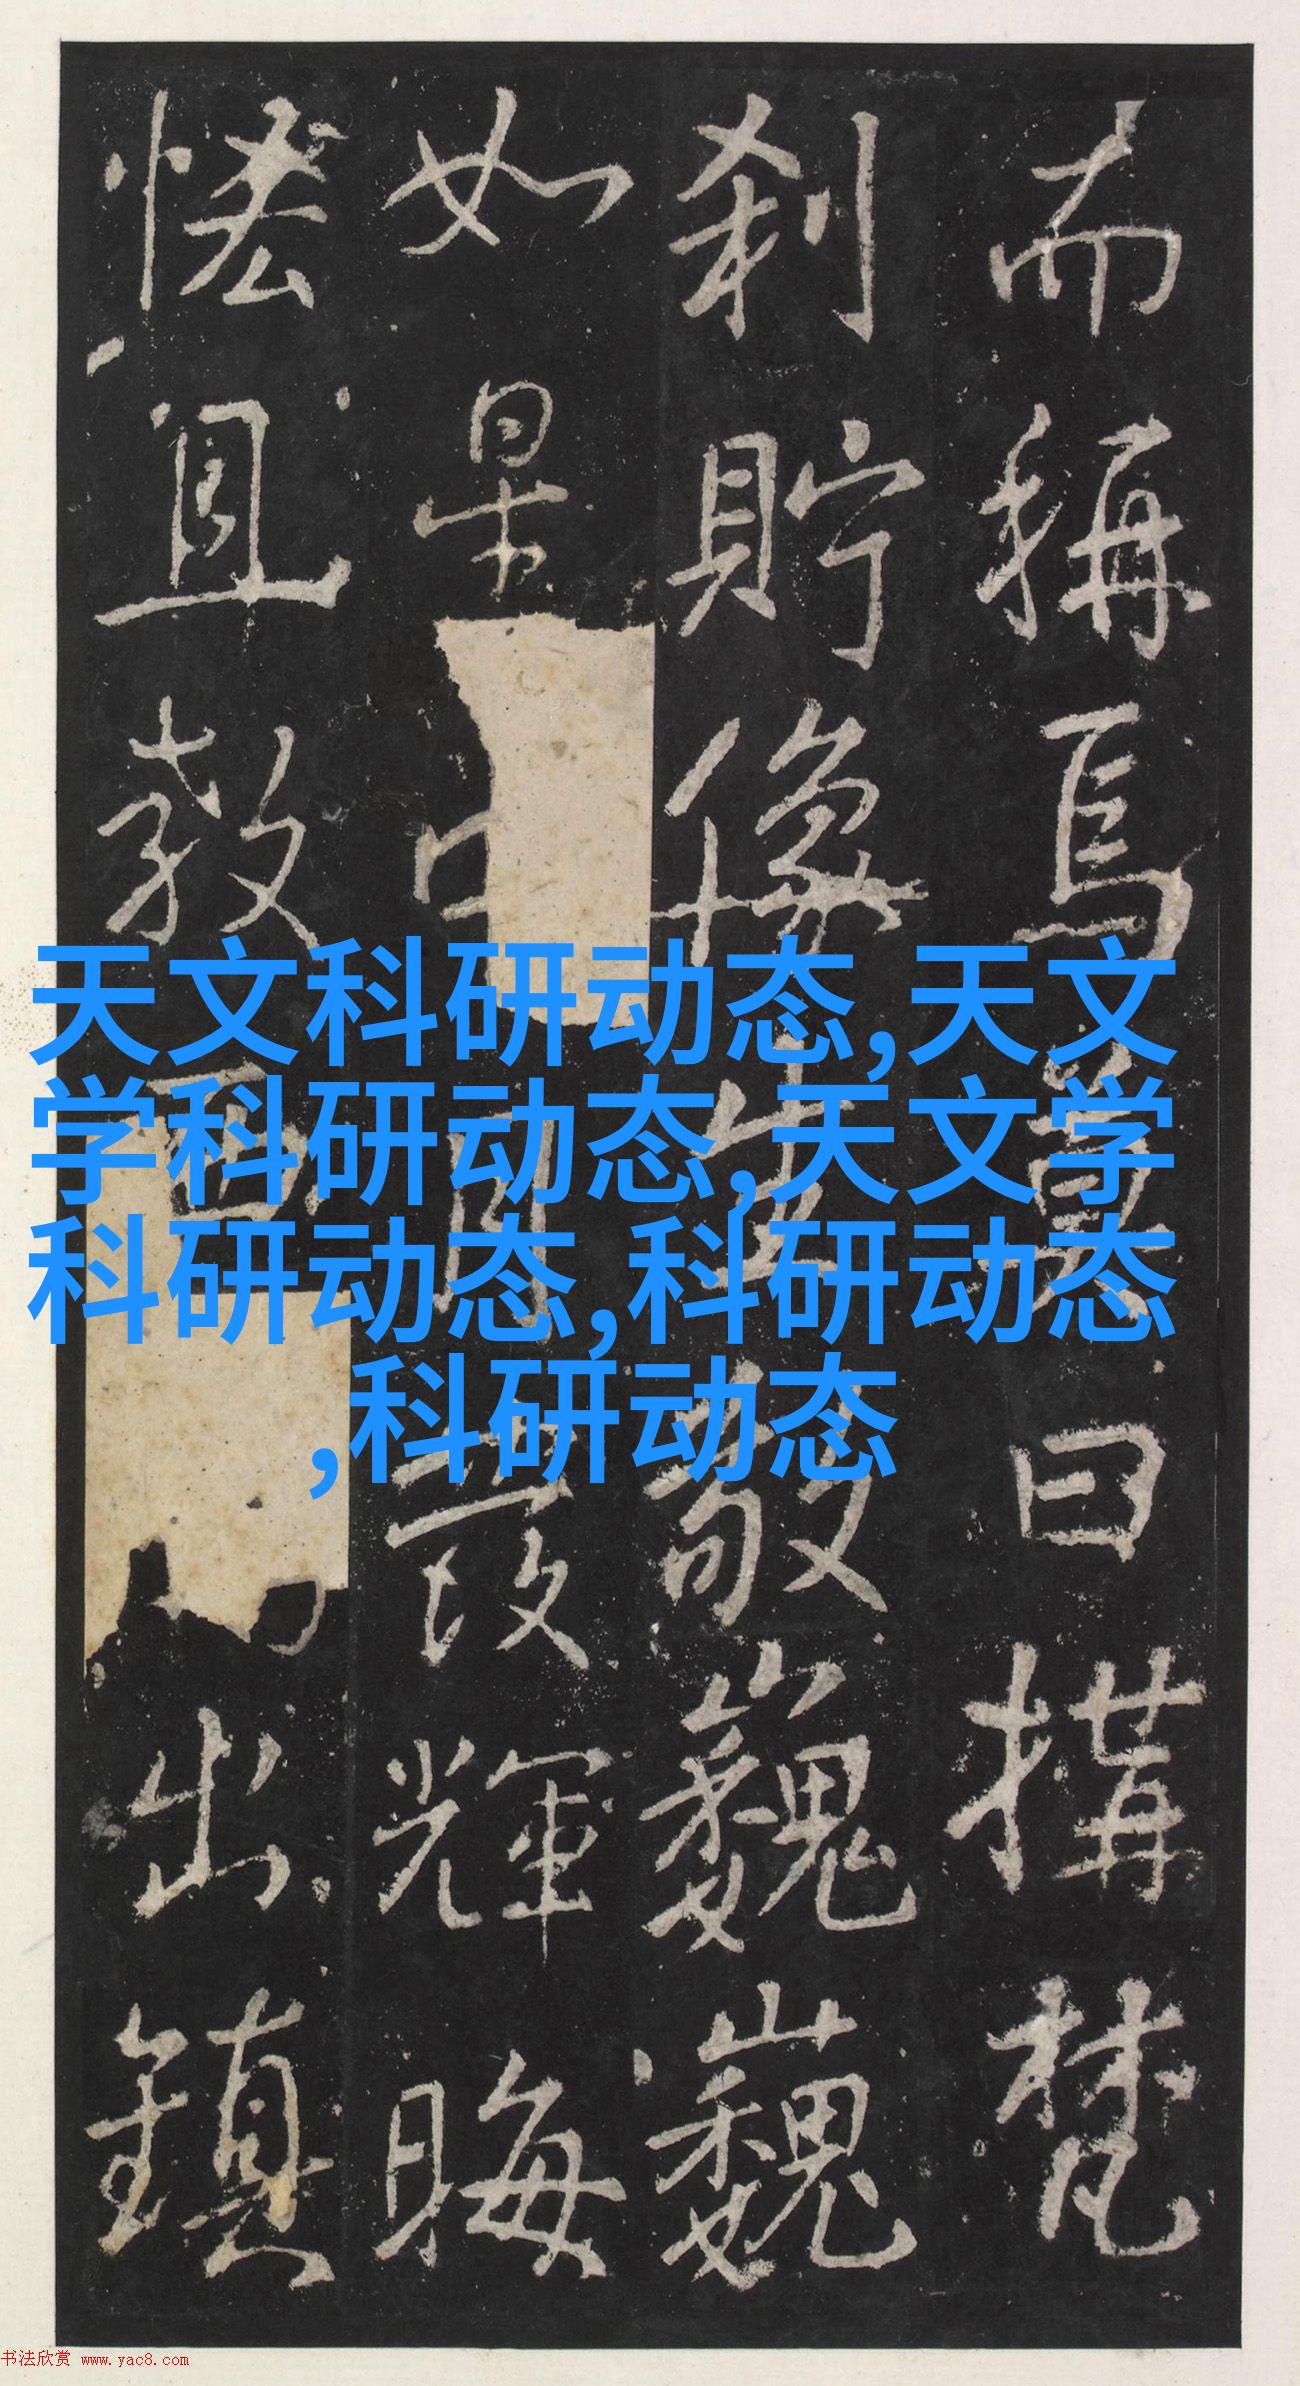 而稱焉曰搆梵
刹貯像生敬巍巍
如星月輝晦
且教西出鎮
天文科研动态,天文
学科研动态,天文学
科研动态,科研动态
,科研动态
书法欣赏 www.yac8.com